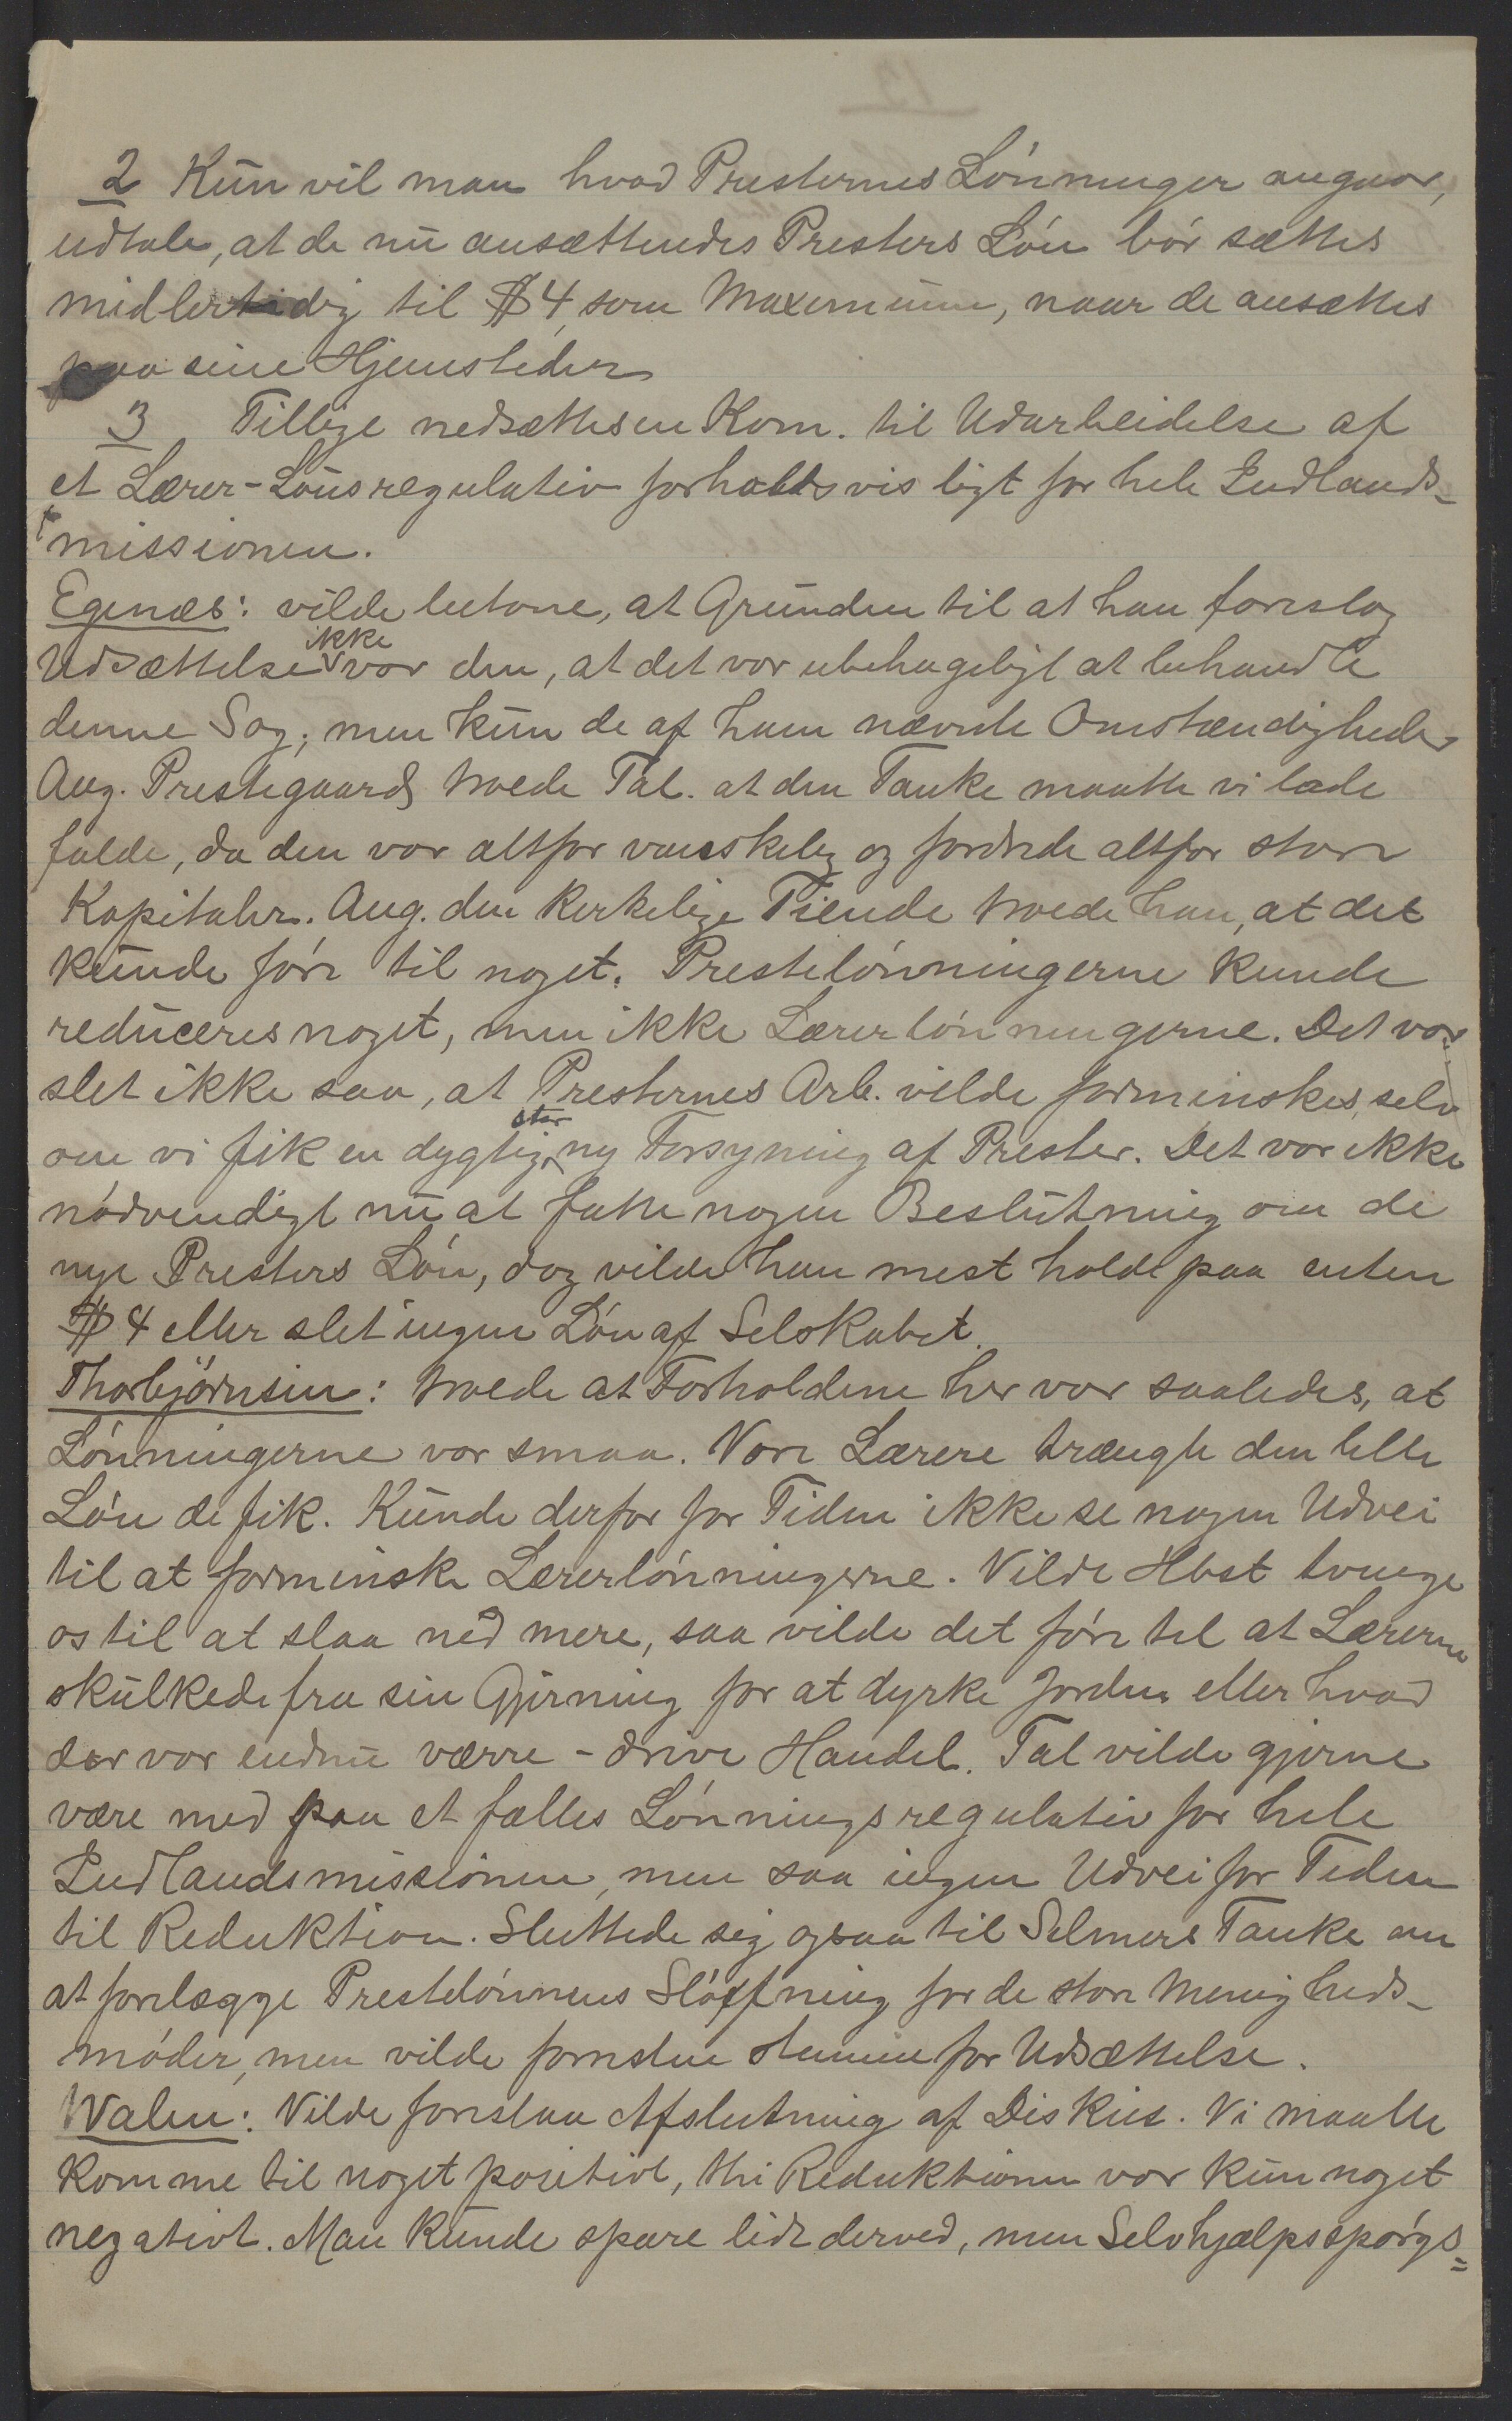 2 Kun vil man hvad Presternes Lønninger angaar,
udtale, at de nu ansættendes Presters Løn bør sættes
midlertidig til $4, som Maximum, naar de ansættes
paa sine Hjemsteder
3 Tillige nedsættes en Kom. til Udarbeidelse af
et Lærer-Lønsregulativ forholdsvis ligt for hele Indlands-
missionen.
Egenæs: vilde betone, at Grunden til at han foreslog
Udsættelse ikke var den, at det var ubehageligt at behandle
denne Sag; men kun de af ham nævnte Omstændigheder
Ang. Prestegaards troede Tal. at den Tanke maatte vi lade
falde, da den var altfor vanskelig og fordrede altfor store
Kapitaler. Ang. den kirkelige Tiende troede han, at det
kunde føre til noget. Prestelønningerne kunde
reduceres noget, men ikke Lærerlønningerne. Det var
slet ikke saa, at Presternes Arb. vilde forminskes, selv
om vi fik en dygtig stor ny Forsyning af Prester. Det var ikke
nødvendigt nu at fatte nogen Beslutning om de
nye Presters Løn, dog vilde han mest holde paa enten
$4 eller slet ingen Løn af Selskabet.
Thorbjørnsen: troede at Forholdene her var saaledes, at
Lønningerne var smaa. Vore Lærere trængte den lille
Løn de fik. Kunde derfor for Tiden ikke se nogen Udvei
til at forminske Lærerlønningerne. Vilde Hbst tvinge
os til at slaa ned mere, saa vilde det føre til at Lærerne
skulkede fra sin Gjerning for at dyrke Jorden eller hvad
der var endnu værre - drive Handel. Tal vilde gjerne
være med paa et fælles Lønningsregulativ for hele
Indlandsmissionen, men saa ingen Udvei for Tiden
til Reduktion. Sluttede sig ogsaa til Selmers Tanke om
at forelægge Prestelønnens Sløffning for de store Menigheds-
møder, men vilde forresten stemme for Udsættelse.
Walen: Vilde foreslaa Afslutning af Diskus. Vi maatte
komme til noget positivt, thi Reduktionen var kun noget
negativt. Man kunde spare lidt derved, men Selvhjælpsspørgs=